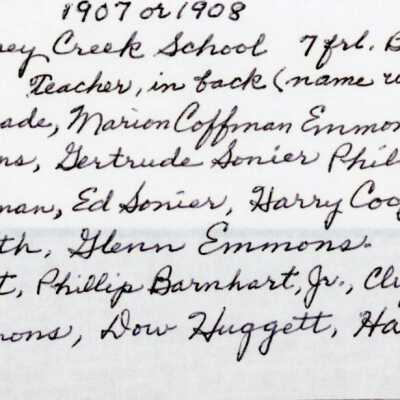 1907 or 1908
ey Creek School 7 frl. B
Teacher, in back (name u
ade, Marion Coffman Emmon
ns, Gertrude Sonier Phil
man, Ed Sonier, Harry Coo
th, Glenn Emmons.
t, Phillip Barnhart, Jr., Cly
mons, Dow Huggett, Ha